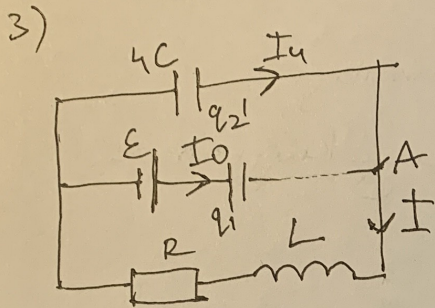 3)
4C
I4
q2'
ε
I0
q1
A
I
R
L